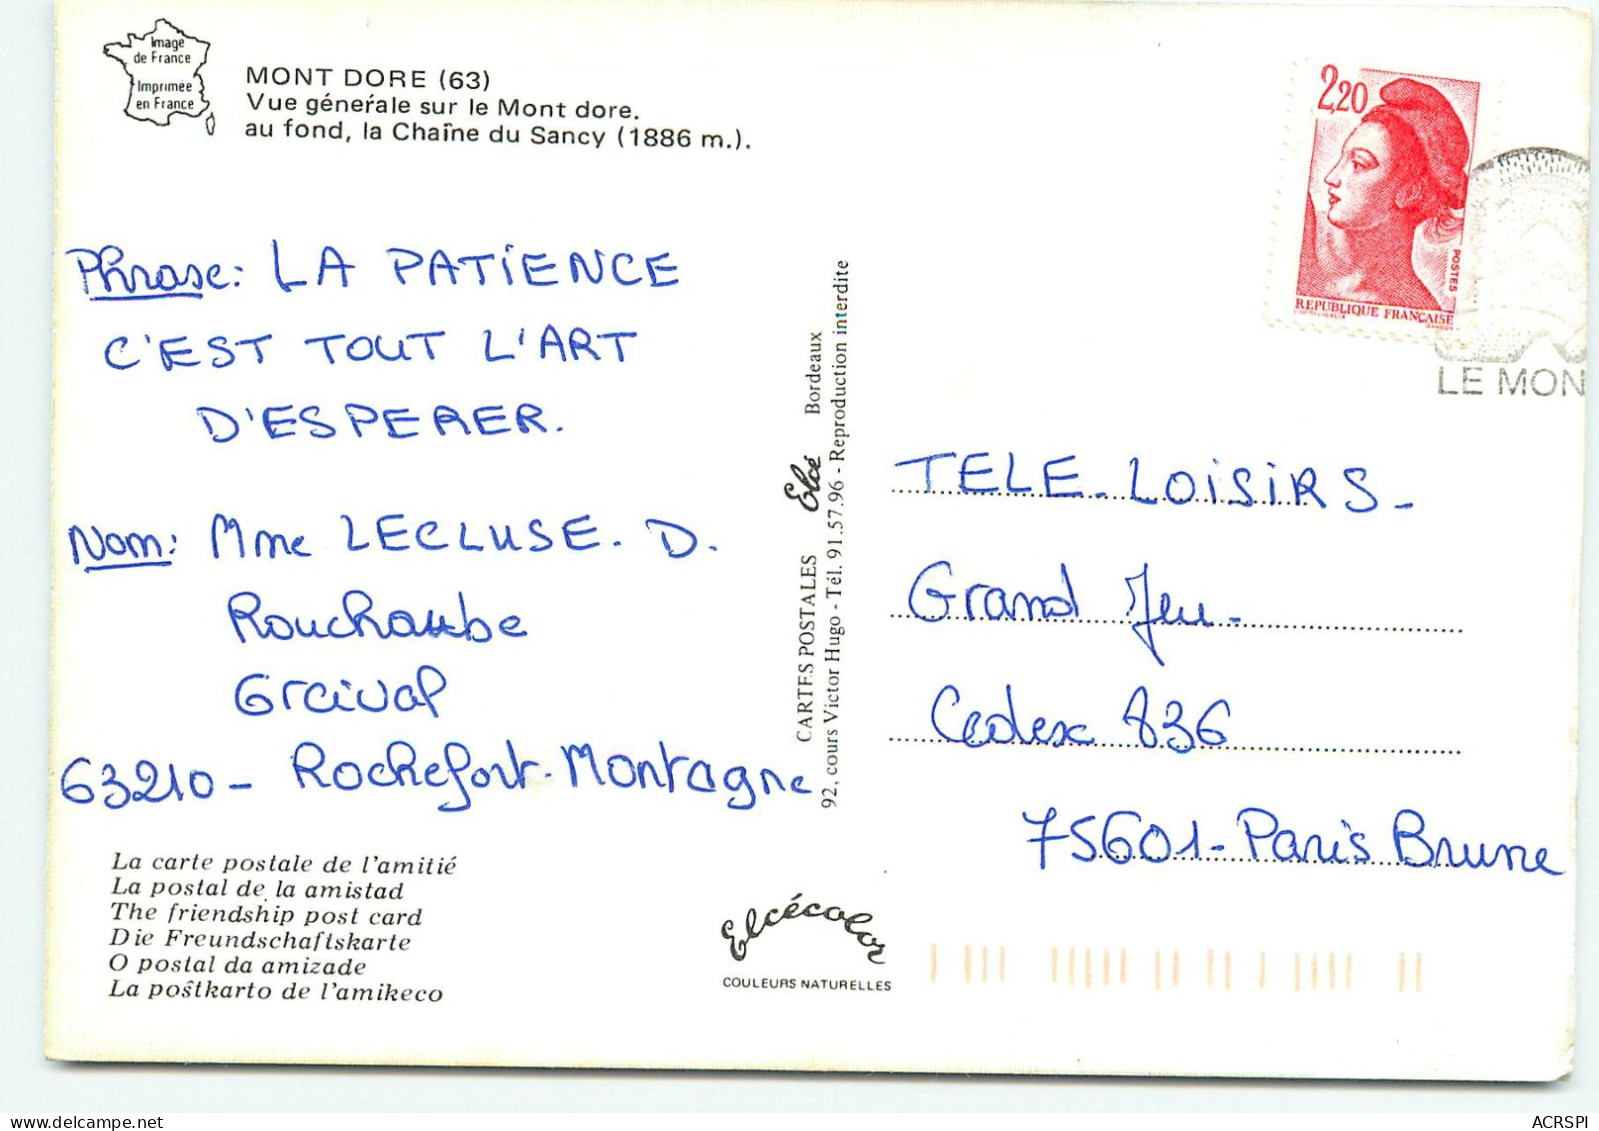 Image
de France
Imprimée
en France
MONT DORE (63)
Vue génerale sur le Mont dore.
au fond, la Chaîne du Sancy (1886 m.).
2,20
POSTES
REPUBLIQUE FRANÇAISE
LE MON
Phrase: LA PATIENCE
C'EST TOUT L'ART
D'ESPERER.
Nom: Mme LECLUSE. D.
Rouchaube
Orcival
63210 - Rochefort-Montagne
CARTES POSTALES Elcé Bordeaux
92, cours Victor Hugo - Tél. 91.57.96 - Reproduction interdite
TELE-LOISIRS-
Grand Jeu-
Cedex 836
75601-Paris Brune
La carte postale de l'amitié
La postal de la amistad
The friendship post card
Die Freundschaftskarte
O postal da amizade
La poŝtkarto de l'amikeco
Elcécolor
COULEURS NATURELLES
ACRSPI